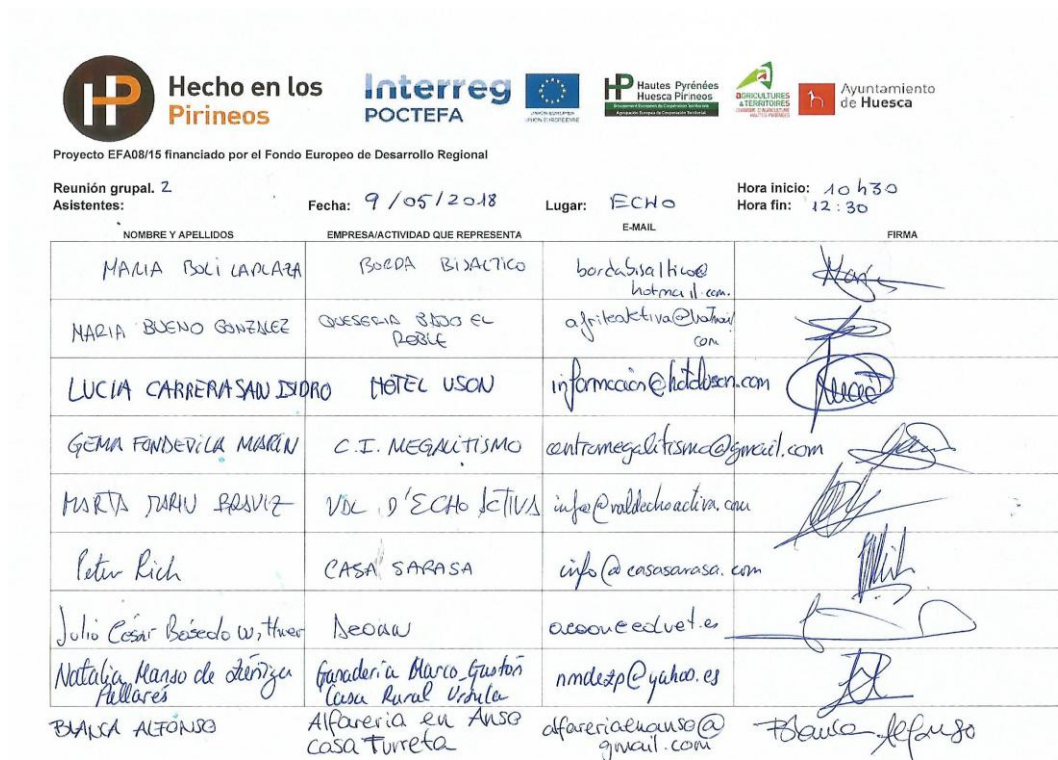 HP Hecho en los
Pirineos
Interreg
POCTEFA
UNIÓN EUROPEA
UNION EUROPÉENNE
HP Hautes Pyrénées
Huesca Pirineos
AGRICULTURES
& TERRITOIRES
CHAMBRE D'AGRICULTURE
HAUTES-PYRÉNÉES
h Ayuntamiento
de Huesca
Proyecto EFA08/15 financiado por el Fondo Europeo de Desarrollo Regional
Reunión grupal. 2
Asistentes:
Fecha: 9/05/2018
Lugar: ECHO
Hora inicio: 10h30
Hora fin: 12:30
NOMBRE Y APELLIDOS EMPRESA/ACTIVIDAD QUE REPRESENTA E-MAIL FIRMA
MARIA BOLI LAPLAZA BORDA BISALTICO bordabisaltico@
hotmail.com.
MARIA BUENO GONZALEZ QUESERIA BAJO EL
ROBLE
LUCIA CARRERA SAN ISIDRO HOTEL USON informacion@hoteluson.com
GEMA FONDEVILA MARÍN C.I. MEGALITISMO centromegalitismo@gmail.com
MARTA MARIN VAL D'ECHO ACTIVA info@valdechoactiva.com
Peter Rich CASA SARASA info@casasarasa.com
Julio César
Natalia Manso de Zúñiga
Pallarés
Ganadería Marco Gastón
Casa Rural Ursula
nmdezp@yahoo.es
BLANCA ALFONSO Alfareria en Anso
casa Turreta
alfareriaenanso@
gmail.com
Blanca Alfonso